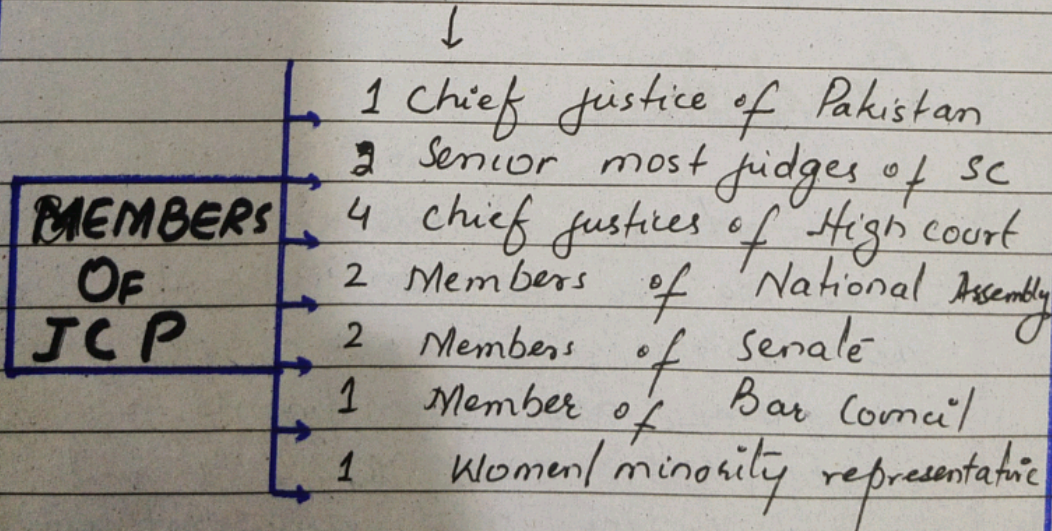 MEMBERS
OF
JCP
1 Chief justice of Pakistan
2 Senior most judges of SC
4 Chief justices of High court
2 Members of National Assembly
2 Members of Senate
1 Member of Bar Council
1 Women/minority representative